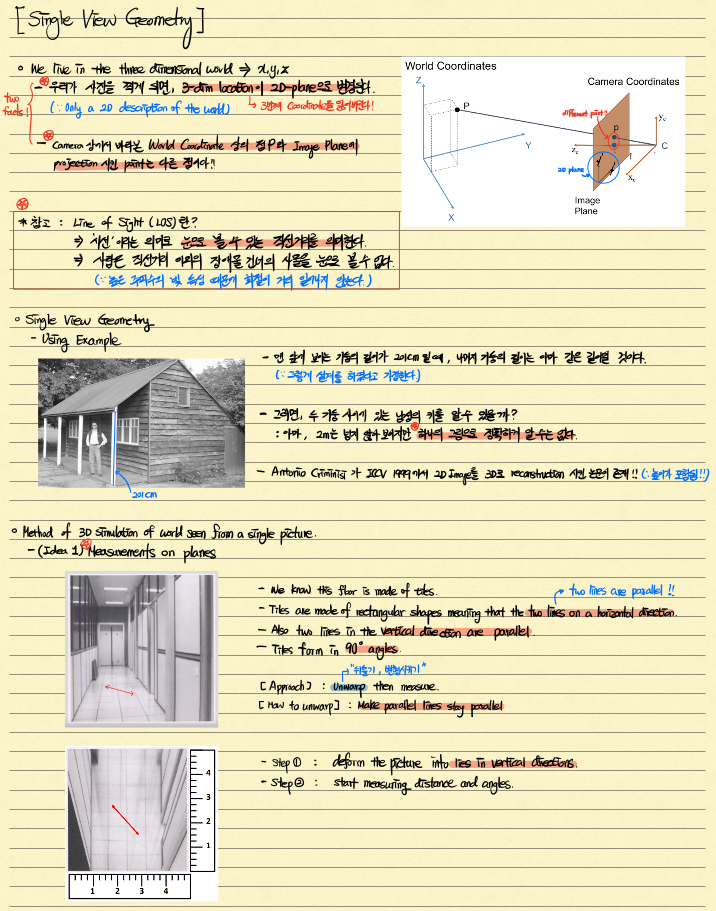 [Single View Geometry]
o We live in the three dimensional world ⇒ x,y,z
two facts!
- 우리가 사진을 찍게 되면, 3-dim location이 2D-plane으로 변형된다.
(∵ Only a 2D description of the world)
↳ 3번째 Coordinate를 잃어버린다!
- Camera 상에서 바라본 World Coordinate 상의 점 P와 Image Plane에
projection 시킨 point는 다른 점이다!!
World Coordinates
Camera Coordinates
Z
P
Y
X
different point!
p
y_c
z_c
C
f
x_c
2D plane
y
x
Image
Plane
* 참고 : Line of Sight (LOS)란?
⇒ '시선'이라는 의미로 눈으로 볼 수 있는 직선거리를 의미한다.
⇒ 사람은 직선거리 이외의 장애물 건너의 사물을 눈으로 볼 수 없다.
(∵ 높은 주파수의 빛 특성 때문에 회절이 거의 일어나지 않는다.)
o Single View Geometry
- Using Example
- 맨 앞에 보이는 기둥의 길이가 201cm 일 때, 나머지 기둥의 길이는 아마 같은 길이일 것이다.
(∵ 그렇게 설계를 하였다고 가정한다.)
- 그러면, 두 기둥 사이에 있는 남성의 키를 알 수 있을까?
: 아마, 2m는 넘지 않아 보이지만 하나의 그림으로 정확하게 알 수는 없다.
- Antonio Criminisi 가 ICCV 1999에서 2D Image를 3D로 reconstruction 시킨 논문이 존재!! (∵ 높이가 포함됨!!)
201cm
o Method of 3D simulation of world seen from a single picture.
- (Idea 1) Measurements on planes
- We know this floor is made of tiles.
two lines are parallel !!
- Tiles are made of rectangular shapes meaning that the two lines on a horizontal direction.
- Also two lines in the vertical direction are parallel.
- Tiles form in 90° angles.
"뒤틀기, 변형시키기"
[Approach] : Unwarp then measure.
[How to unwarp] : Make parallel lines stay parallel
- Step ① : deform the picture into lies in vertical directions.
- Step ② : start measuring distance and angles.
4
3
2
1
1 2 3 4